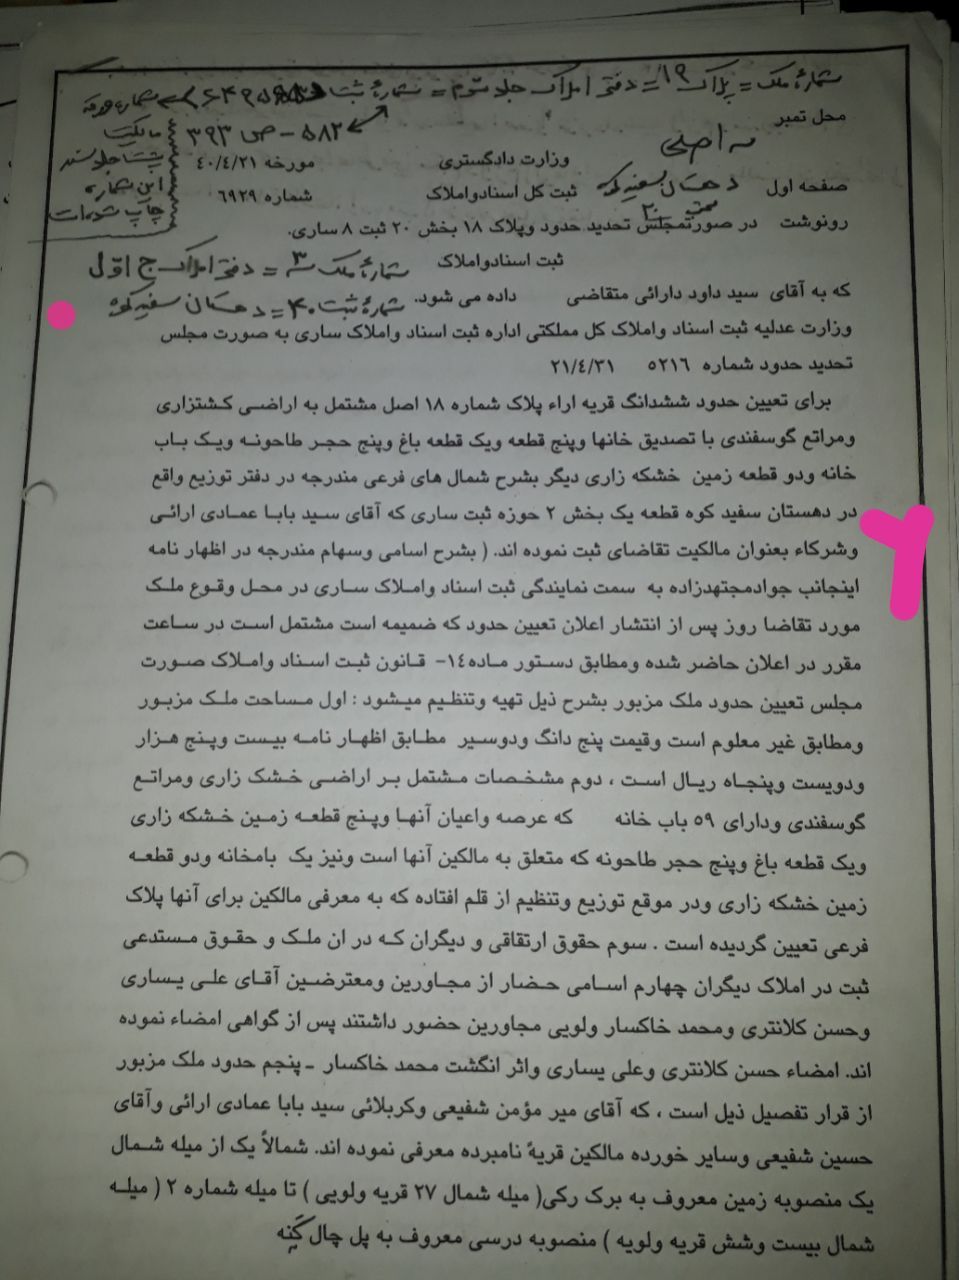 شمارهٔ ملک = پلاک ۱۹ = دفتر املاک جلد سوّم = شمارهٔ ثبت
۵۸۲ - ص ۳۹۳
مالکیت
این شماره
محل تمبر
اصلی
وزارت دادگستری
مورخه ۴۰/۴/۲۱
صفحه اول دهستان سفیدکوه ثبت کل اسنادواملاک
شماره ۶۹۲۹
رونوشت در صورتمجلس تحدید حدود وپلاک ۱۸ بخش ۲۰ ثبت ۸ ساری.
ثبت اسنادواملاک
شمارهٔ ملک ۳ = دفتر املاک ج اوّل
که به آقای سید داود دارائی متقاضی داده می شود.
شمارهٔ ثبت ۴۰ = دهستان سفیدکوه
وزارت عدلیه ثبت اسناد واملاک کل مملکتی اداره ثبت اسناد واملاک ساری به صورت مجلس
تحدید حدود شماره ۵۲۱۶ ۲۱/۴/۳۱
برای تعیین حدود ششدانگ قریه اراء پلاک شماره ۱۸ اصل مشتمل به اراضی کشتزاری
ومراتع گوسفندی با تصدیق خانها وپنج قطعه ویک قطعه باغ وپنج حجر طاحونه ویک باب
خانه ودو قطعه زمین خشکه زاری دیگر بشرح شمال های فرعی مندرجه در دفتر توزیع واقع
در دهستان سفید کوه قطعه یک بخش ۲ حوزه ثبت ساری که آقای سید بابا عمادی ارائی
وشرکاء بعنوان مالکیت تقاضای ثبت نموده اند. ( بشرح اسامی وسهام مندرجه در اظهار نامه
اینجانب جوادمجتهدزاده به سمت نمایندگی ثبت اسناد واملاک ساری در محل وقوع ملک
مورد تقاضا روز پس از انتشار اعلان تعیین حدود که ضمیمه است مشتمل است در ساعت
مقرر در اعلان حاضر شده ومطابق دستور ماده۱۴- قانون ثبت اسناد واملاک صورت
مجلس تعیین حدود ملک مزبور بشرح ذیل تهیه وتنظیم میشود : اول مساحت ملک مزبور
ومطابق غیر معلوم است وقیمت پنج دانگ ودوسیر مطابق اظهار نامه بیست وپنج هزار
ودویست وپنجاه ریال است ، دوم مشخصات مشتمل بر اراضی خشک زاری ومراتع
گوسفندی ودارای ۵۹ باب خانه که عرصه واعیان آنها وپنج قطعه زمین خشکه زاری
ویک قطعه باغ وپنج حجر طاحونه که متعلق به مالکین آنها است ونیز یک بامخانه ودو قطعه
زمین خشکه زاری ودر موقع توزیع وتنظیم از قلم افتاده که به معرفی مالکین برای آنها پلاک
فرعی تعیین گردیده است . سوم حقوق ارتقاقی و دیگران که در ان ملک و حقوق مستدعی
ثبت در املاک دیگران چهارم اسامی حضار از مجاورین ومعترضین آقای علی یساری
وحسن کلانتری ومحمد خاکسار ولویی مجاورین حضور داشتند پس از گواهی امضاء نموده
اند. امضاء حسن کلانتری وعلی یساری واثر انگشت محمد خاکسار - پنجم حدود ملک مزبور
از قرار تفصیل ذیل است ، که آقای میر مؤمن شفیعی وکربلائی سید بابا عمادی ارائی وآقای
حسین شفیعی وسایر خورده مالکین قریهٔ نامبرده معرفی نموده اند. شمالاً یک از میله شمال
یک منصوبه زمین معروف به برک رکی( میله شمال ۲۷ قریه ولویی ) تا میله شماره ۲ ( میله
شمال بیست وشش قریه ولویه ) منصوبه درسی معروف به پل چال کَنِه